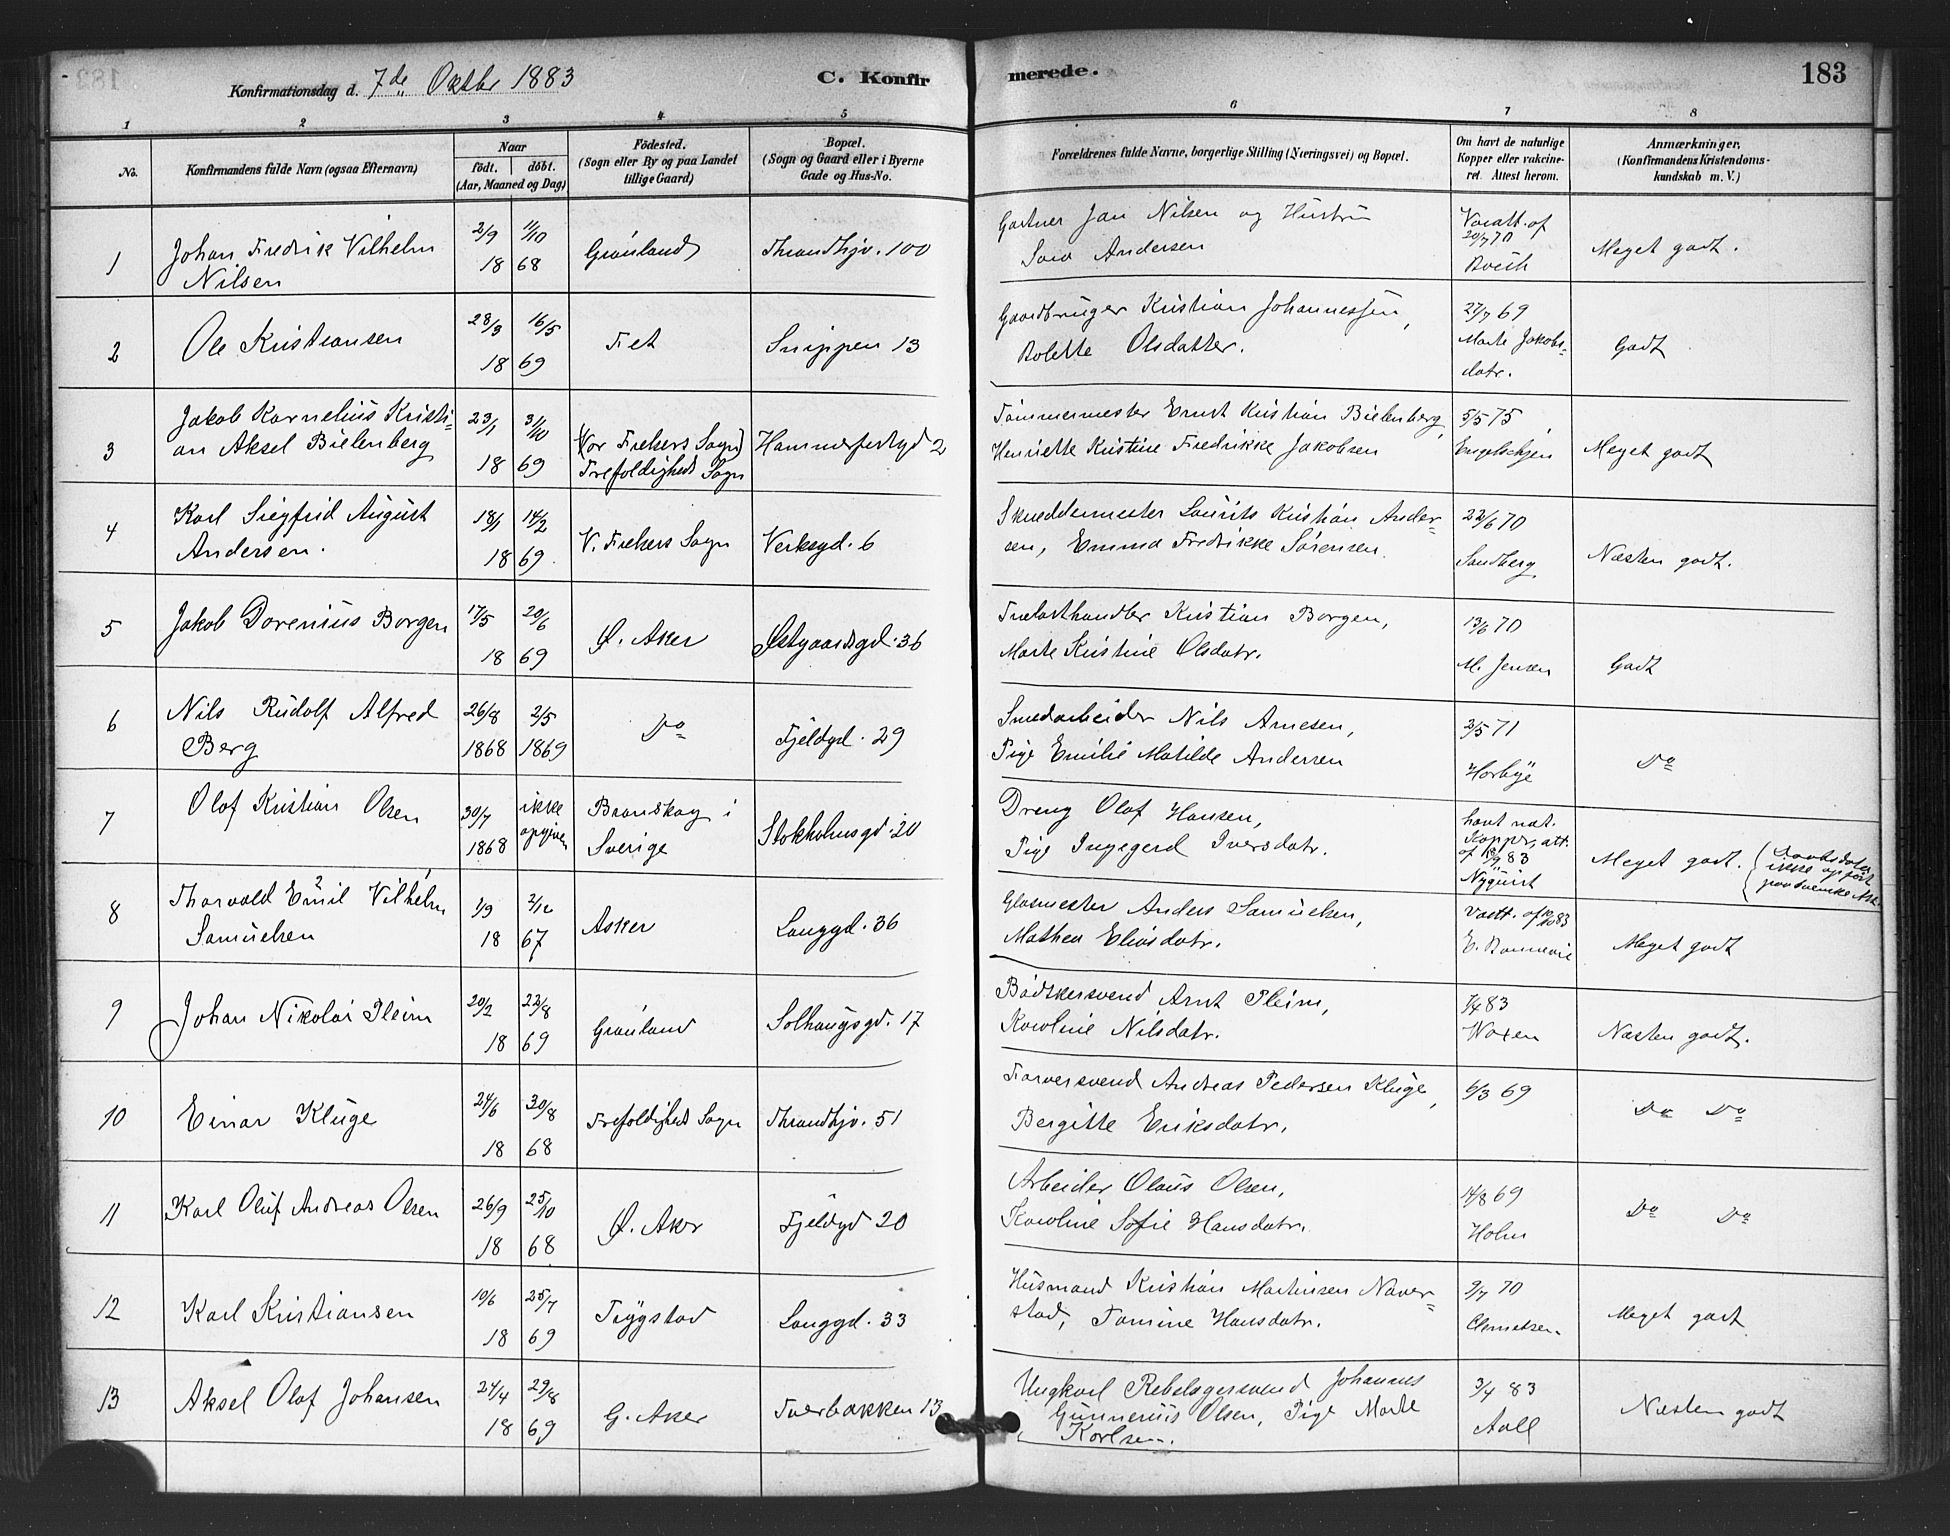 Konfirmationsdag d. 7de Oktbr 1883
C. Konfirmerede.
183
1 2 3 4 5 6 7 8
No.
Konfirmandens fulde Navn (ogsaa Efternavn)
Naar
födt. döbt.
(Aar, Maaned og Dag)
Födested.
(Sogn eller By og paa Landet
tillige Gaard)
Bopæl.
(Sogn og Gaard eller i Byerne
Gade og Hus-No.
Forældrenes fulde Navne, borgerlige Stilling (Næringsvei) og Bopæl.
Om havt de naturlige
Kopper eller vakcine-
ret. Attest herom.
Anmærkninger.
(Konfirmandens Kristendoms-
kundskab m. V.)
1 Johan Fredrik Vilhelm
Nilsen
2/9 11/10
18 68
Grønland
Throndhjv. 100
Gartner Jan Nilsen og Hustru
Andersen
Vacatt. af
20/7 70
Meget godt.
2 Ole Kristiansen
28/3 16/5
18 69
Fet
Snippen 13
Gaardbruger Kristian Johannessen,
Bolette Olsdatter.
27/7 69
Marte Jakobs-
datr.
Godt
3 Jakob Kornelius Kristi-
an Aksel Bielenberg
23/1 31/10
18 69
(Vor Frelsers Sogn)
Trefoldigheds Sogn
Hammerfestgd 2
Tømmermester Ernst Kristian Bielenberg,
Henriette Kristine Fredrikke Jakobsen
5/5 75
Engelschjen
Meget godt
4 Karl Siegfrid August
Andersen.
18/1 14/2
18 69
V. Frelsers Sogn
Verksgd. 6
Skræddermester Laurits Kristian Ander-
sen, Emma Fredrikke Sørensen.
22/6 70
Sandberg
Næsten godt.
5 Jakob Dorenius Borgen
17/5 20/6
18 69
Ø. Aker
Østgaardsgd. 36
Trælasthandler Kristian Borgen,
Marte Kristine Olsdatr.
13/6 70
M. Jensen
Godt
6 Nils Rudolf Alfred
Berg
26/8 2/5
1868 1869
Do
Fjeldgd. 29
Smedarbeider Nils Arnesen,
Pige Emilie Matilde Andersen
3/5 71
Horbye
Do
7 Olof Kristian Olsen
30/7 ikke
1868 opgiven
Branskog i
Sverige
Stokholmsgd. 20
Dreng Olof Hansen,
Pige Ingegerd Iversdatr.
havt nat.
Kopper, att.
af 18/9 83
Nyquist
Meget godt. (Daabsdatoen
ikke opført
paa svenske Att.
8 Thorvald Emil Vilhelm
Samuelsen
1/9 2/12
18 67
Asker
Langgd. 36
Glasmester Anders Samuelsen,
Mathea Eliasdatr.
Vatt. af 10/10 83
E. Bonnevie
Meget godt
9 Johan Nikolai Pleim
20/2 22/8
18 69
Grønland
Solhaugsgd. 17
Bødkersvend Arnt Pleim,
Karoline Nilsdatr.
1/4 83
Woxen
Næsten godt.
10 Einar Kluge
24/6 30/8
18 68
Trefoldigheds Sogn
Throndhjv. 51
Farversvend Andreas Pedersen Kluge,
Bergitte Eriksdatr.
6/3 69
Do Do
11 Karl Oluf Andreas Olsen
26/9 25/10
18 68
Ø. Aker
Fjeldgd 20
Arbeider Olaus Olsen,
Karoline Sofie Hansdatr.
14/8 69
Holm
Do Do
12 Karl Kristiansen
10/6 25/7
18 69
Trygstad
Langgd. 33
Husmand Kristian Martinsen Naver-
stad, Tomine Hansdatr.
2/7 70
Clemetsen
Meget godt
13 Aksel Olaf Johansen
24/4 29/8
18 69
G. Aker
Tverbakken 13
Ungkarl Rebslagersvend Johannes
Gunnerius Olsen, Pige Marte
Karlsen.
3/4 83
Aall
Næsten godt